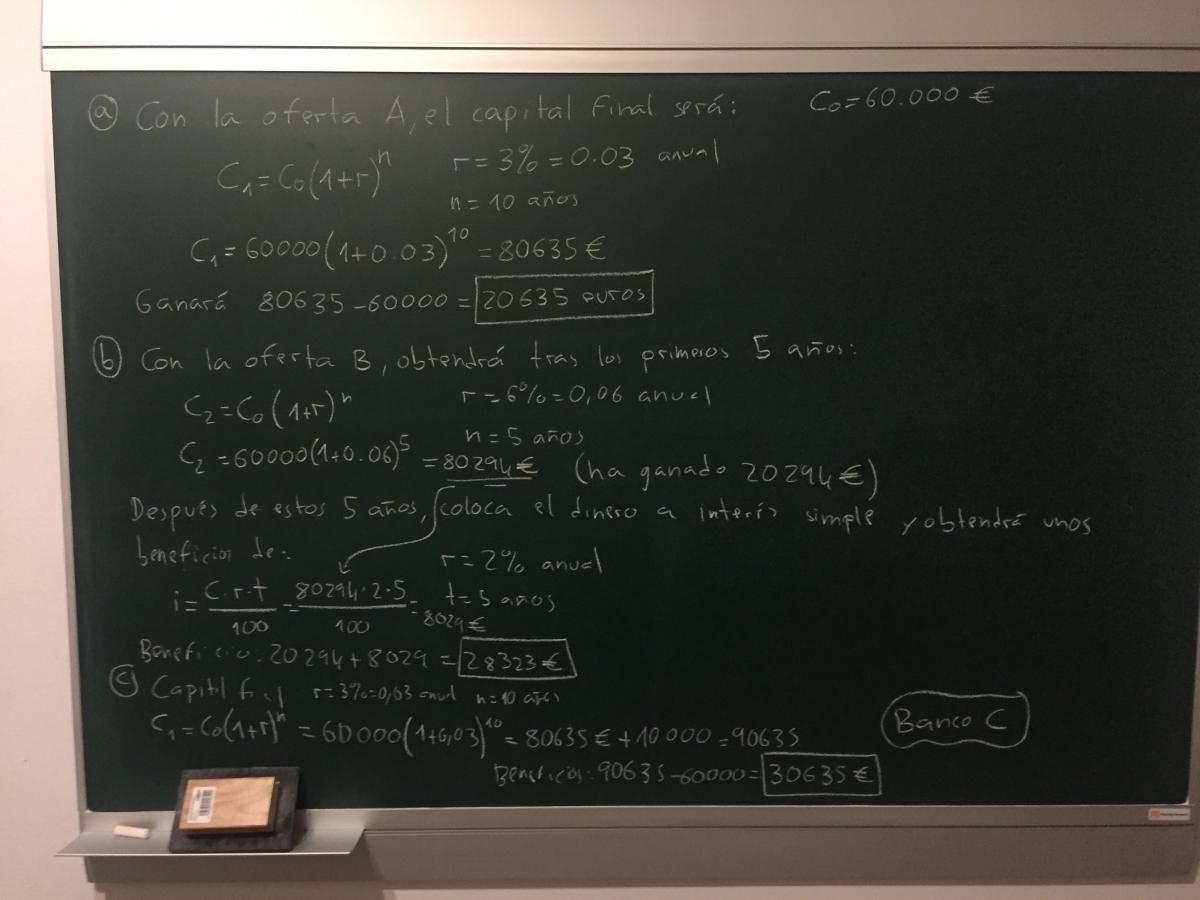 a Con la oferta A, el capital final será: C₀=60.000 €
C₁=C₀(1+r)ⁿ r=3%=0.03 anual
n=10 años
C₁=60000(1+0.03)¹⁰=80635€
Ganará 80635-60000=20635 euros
b Con la oferta B, obtendrá tras los primeros 5 años:
C₂=C₀(1+r)ⁿ r=6%=0,06 anual
n=5 años
C₂=60000(1+0.06)⁵=80294€ (ha ganado 20294€)
Después de estos 5 años, coloca el dinero a interés simple y obtendrá unos
beneficios de: r=2% anual
i=C.r.t/100=80294·2·5/100=8029€ t=5 años
Beneficio: 20294+8029=28323€
c Capital final r=3%=0,03 anual n=10 años
C₁=C₀(1+r)ⁿ=60000(1+0,03)¹⁰=80635€+10000=90635
Banco C
Beneficios: 90635-60000=30635€